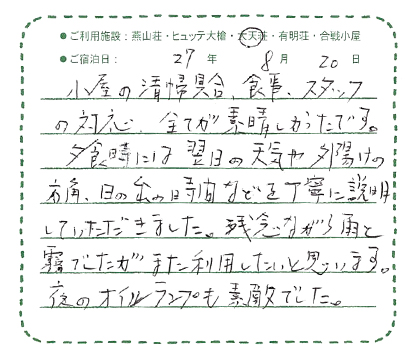 ●ご利用施設：燕山荘・ヒュッテ大槍・大天荘・有明荘・合戦小屋
●ご宿泊日： 27 年 8 月 20 日
小屋の清掃具合、食事、スタッフ
の対応、全てが素晴しかったです。
夕食時には翌日の天気や夕陽の
方角、日の出の時間などを丁寧に説明
していただきました。残念ながら雨と
霧でしたがまた利用したいと思います。
夜のオイルランプも素敵でした。